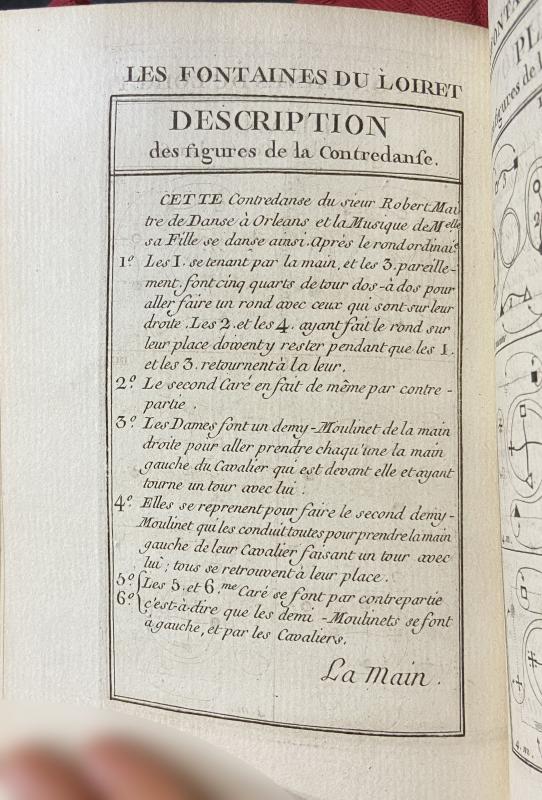 LES FONTAINES DU LOIRET
DESCRIPTION
des figures de la Contredanse.
CETTE Contredanse du sieur Robert Mai
tre de Danse à Orleans et la Musique de Melle
sa Fille se danse ainsi. Après le rond ordinaie
1º Les 1. se tenant par la main, et les 3. pareille-
ment, font cinq quarts de tour dos-à dos pour
aller faire un rond avec ceux qui sont sur leur
droite. Les 2. et les 4. ayant fait le rond sur
leur place doivent y rester pendant que les 1.
et les 3. retournent à la leur.
2º Le second Caré en fait de même par contre-
partie.
3º Les Dames font un demy-Moulinet de la main
droite pour aller prendre chaqu'une la main
gauche du Cavalier qui est devant elle et ayant
tourne un tour avec lui.
4º Elles se reprenent pour faire le second demy-
Moulinet qui les conduit toutes pour prendre la main
gauche de leur Cavalier faisant un tour avec
lui; tous se retrouvent à leur place.
5º Les 5. et 6.me Caré se font par contrepartie
6º c'est-à-dire que les demi-Moulinets se font
à gauche, et par les Cavaliers.
La Main.